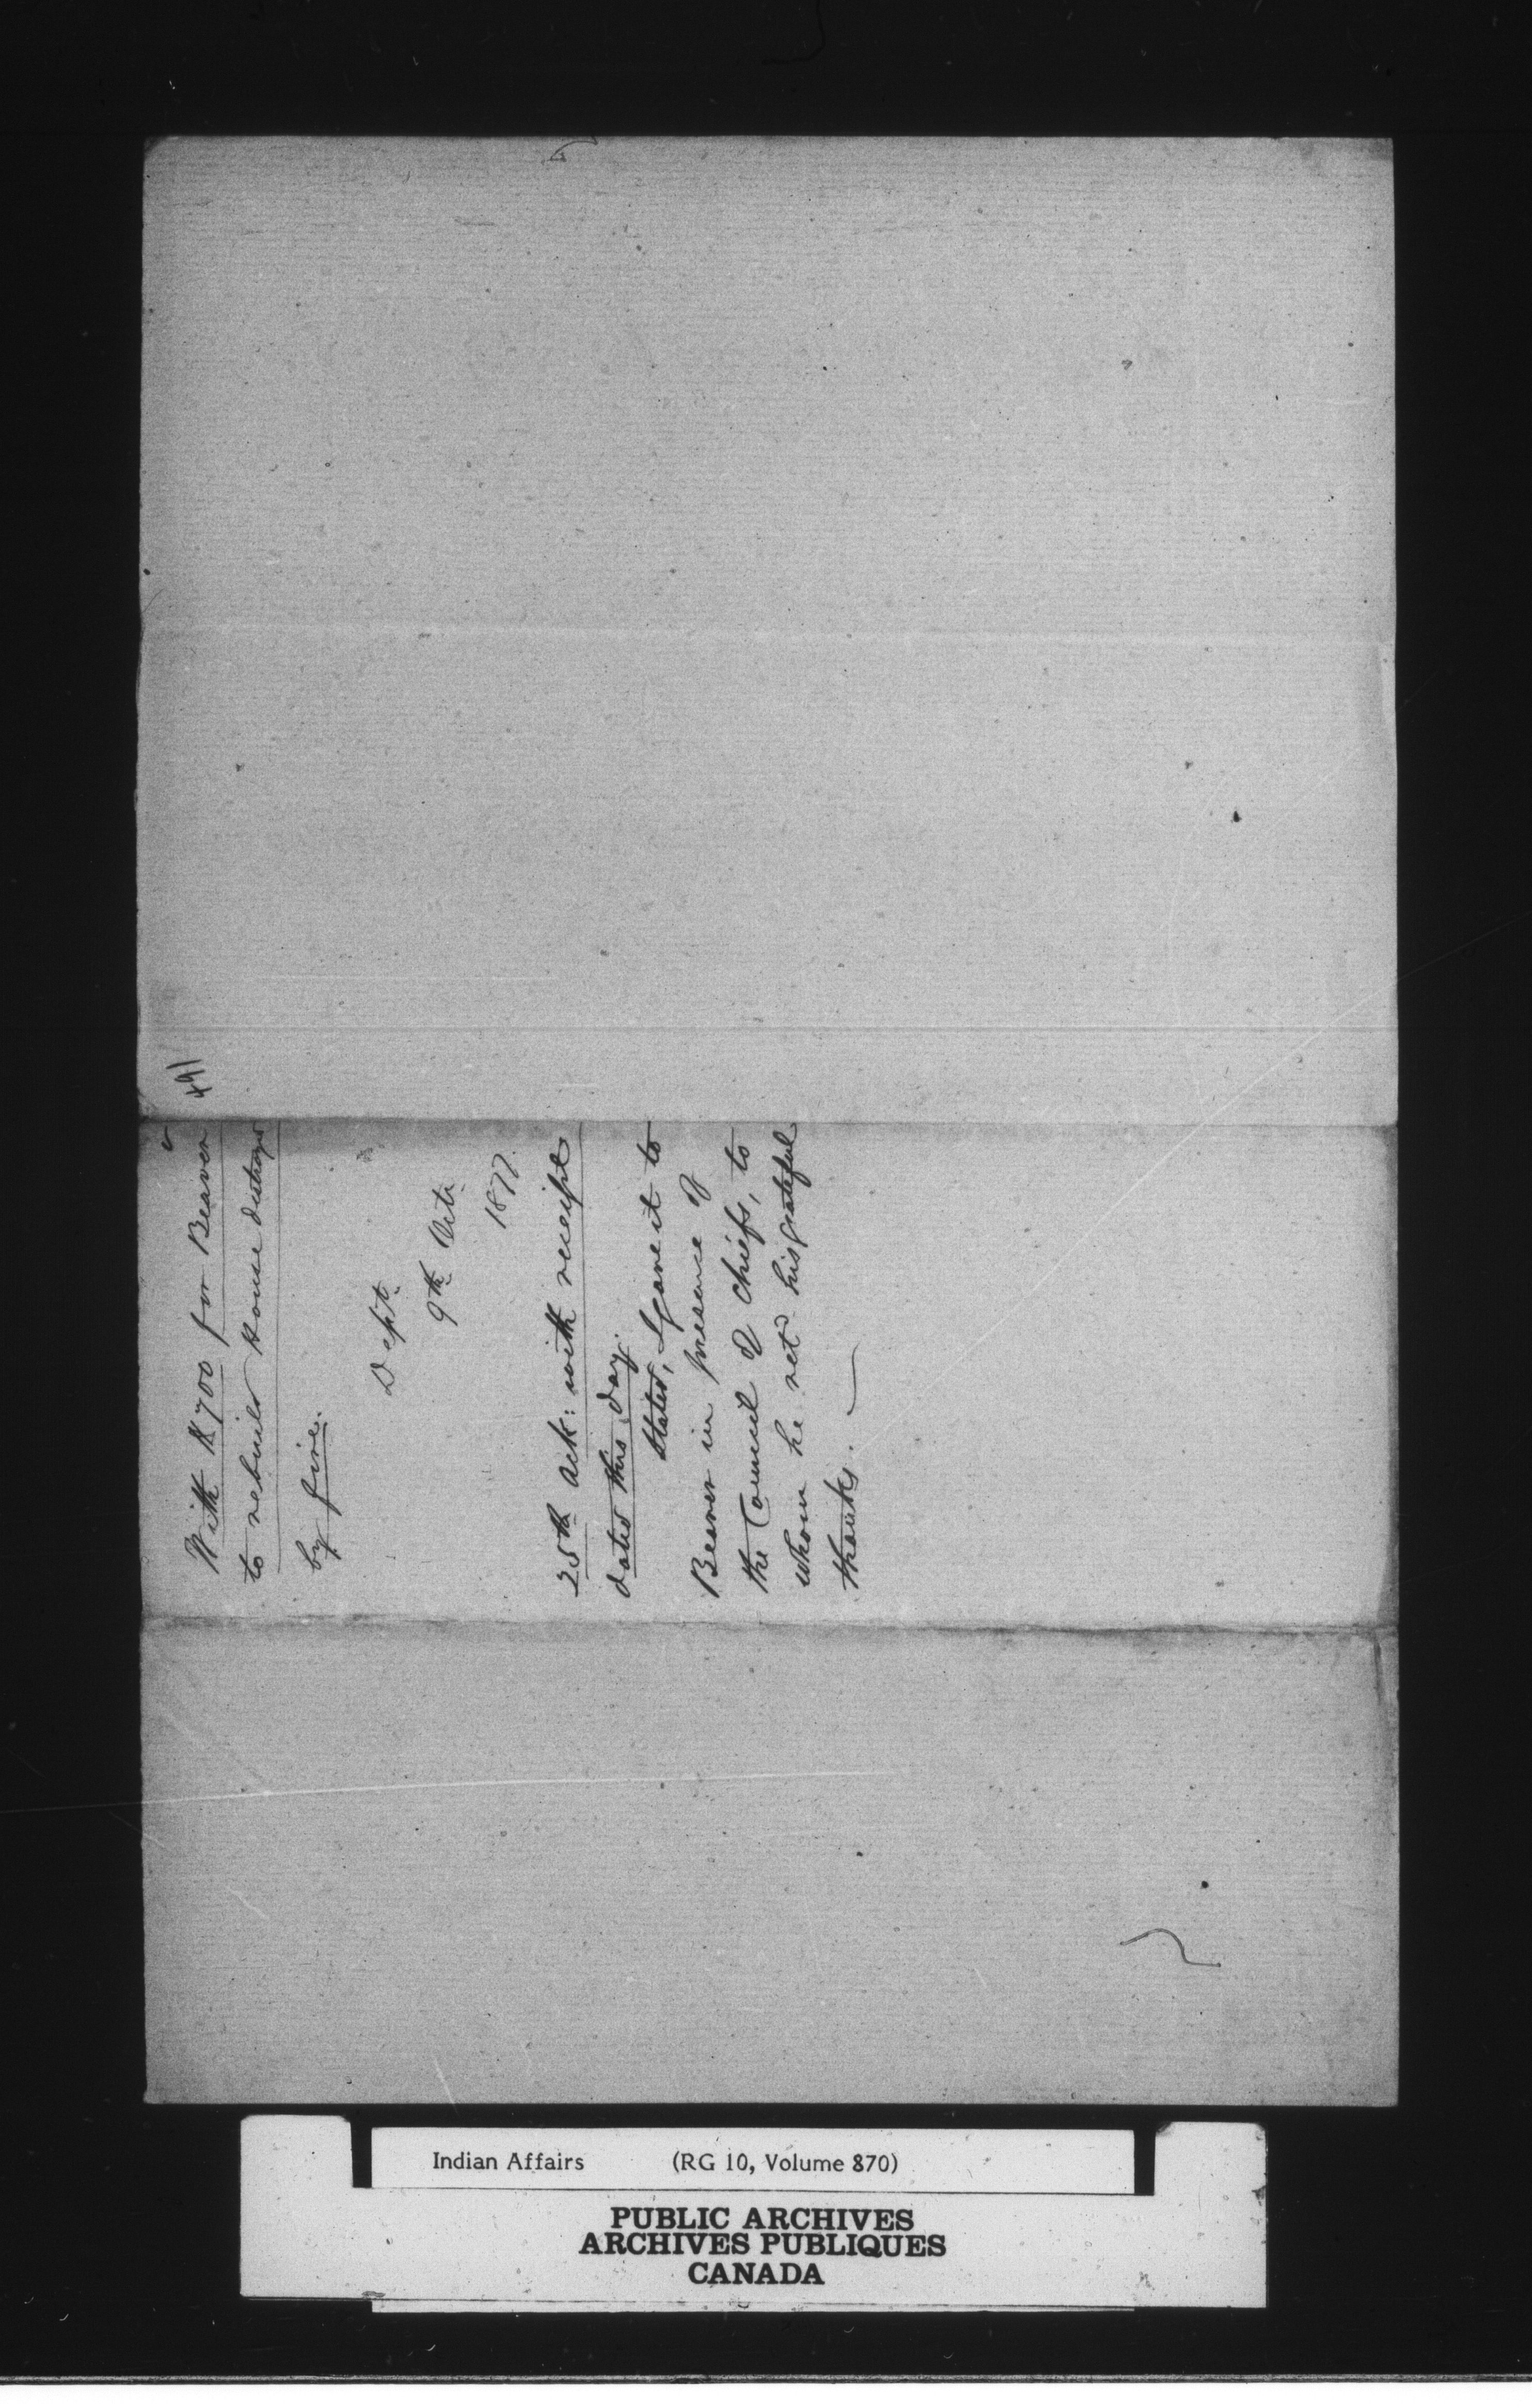 491
With $700 for Beaver
to rebuild House destroyed
by fire.
Dept.
9th Octr.
1877.
25th Ack: with receipt
dated this day.
Stated, I gave it to
Beaver in presence of
the Council of Chiefs, to
whom he retd his grateful
thanks.
Indian Affairs (RG 10, Volume 870)
PUBLIC ARCHIVES
ARCHIVES PUBLIQUES
CANADA